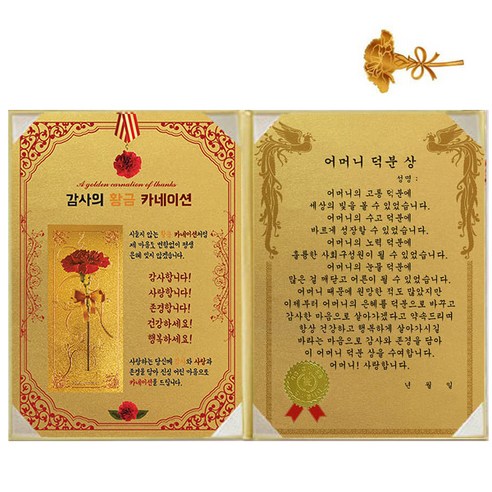 A golden carnation of thanks
감사의 황금 카네이션
시들지 않는 황금 카네이션처럼
제 마음도 변함없이 평생
은혜 잊지 않겠습니다.
감사합니다!
사랑합니다!
존경합니다!
건강하세요!
행복하세요!
사랑하는 당신께 감사와 사랑과
존경을 담아 진심 어린 마음으로
카네이션을 드립니다.
어머니 덕분 상
성명 :
어머니의 고통 덕분에
세상의 빛을 볼 수 있었습니다.
어머니의 수고 덕분에
바르게 성장할 수 있었습니다.
어머니의 노력 덕분에
훌륭한 사회구성원이 될 수 있었습니다.
어머니의 눈물 덕분에
많은 걸 깨닫고 어른이 될 수 있었습니다.
어머니 때문에 원망한 적도 많았지만
이제부터 어머니의 은혜를 덕분으로 바꾸고
감사한 마음으로 살아가겠다고 약속드리며
항상 건강하고 행복하게 살아가시길
바라는 마음으로 감사와 존경을 담아
이 어머니 덕분 상을 수여합니다.
어머니! 사랑합니다.
년 월 일